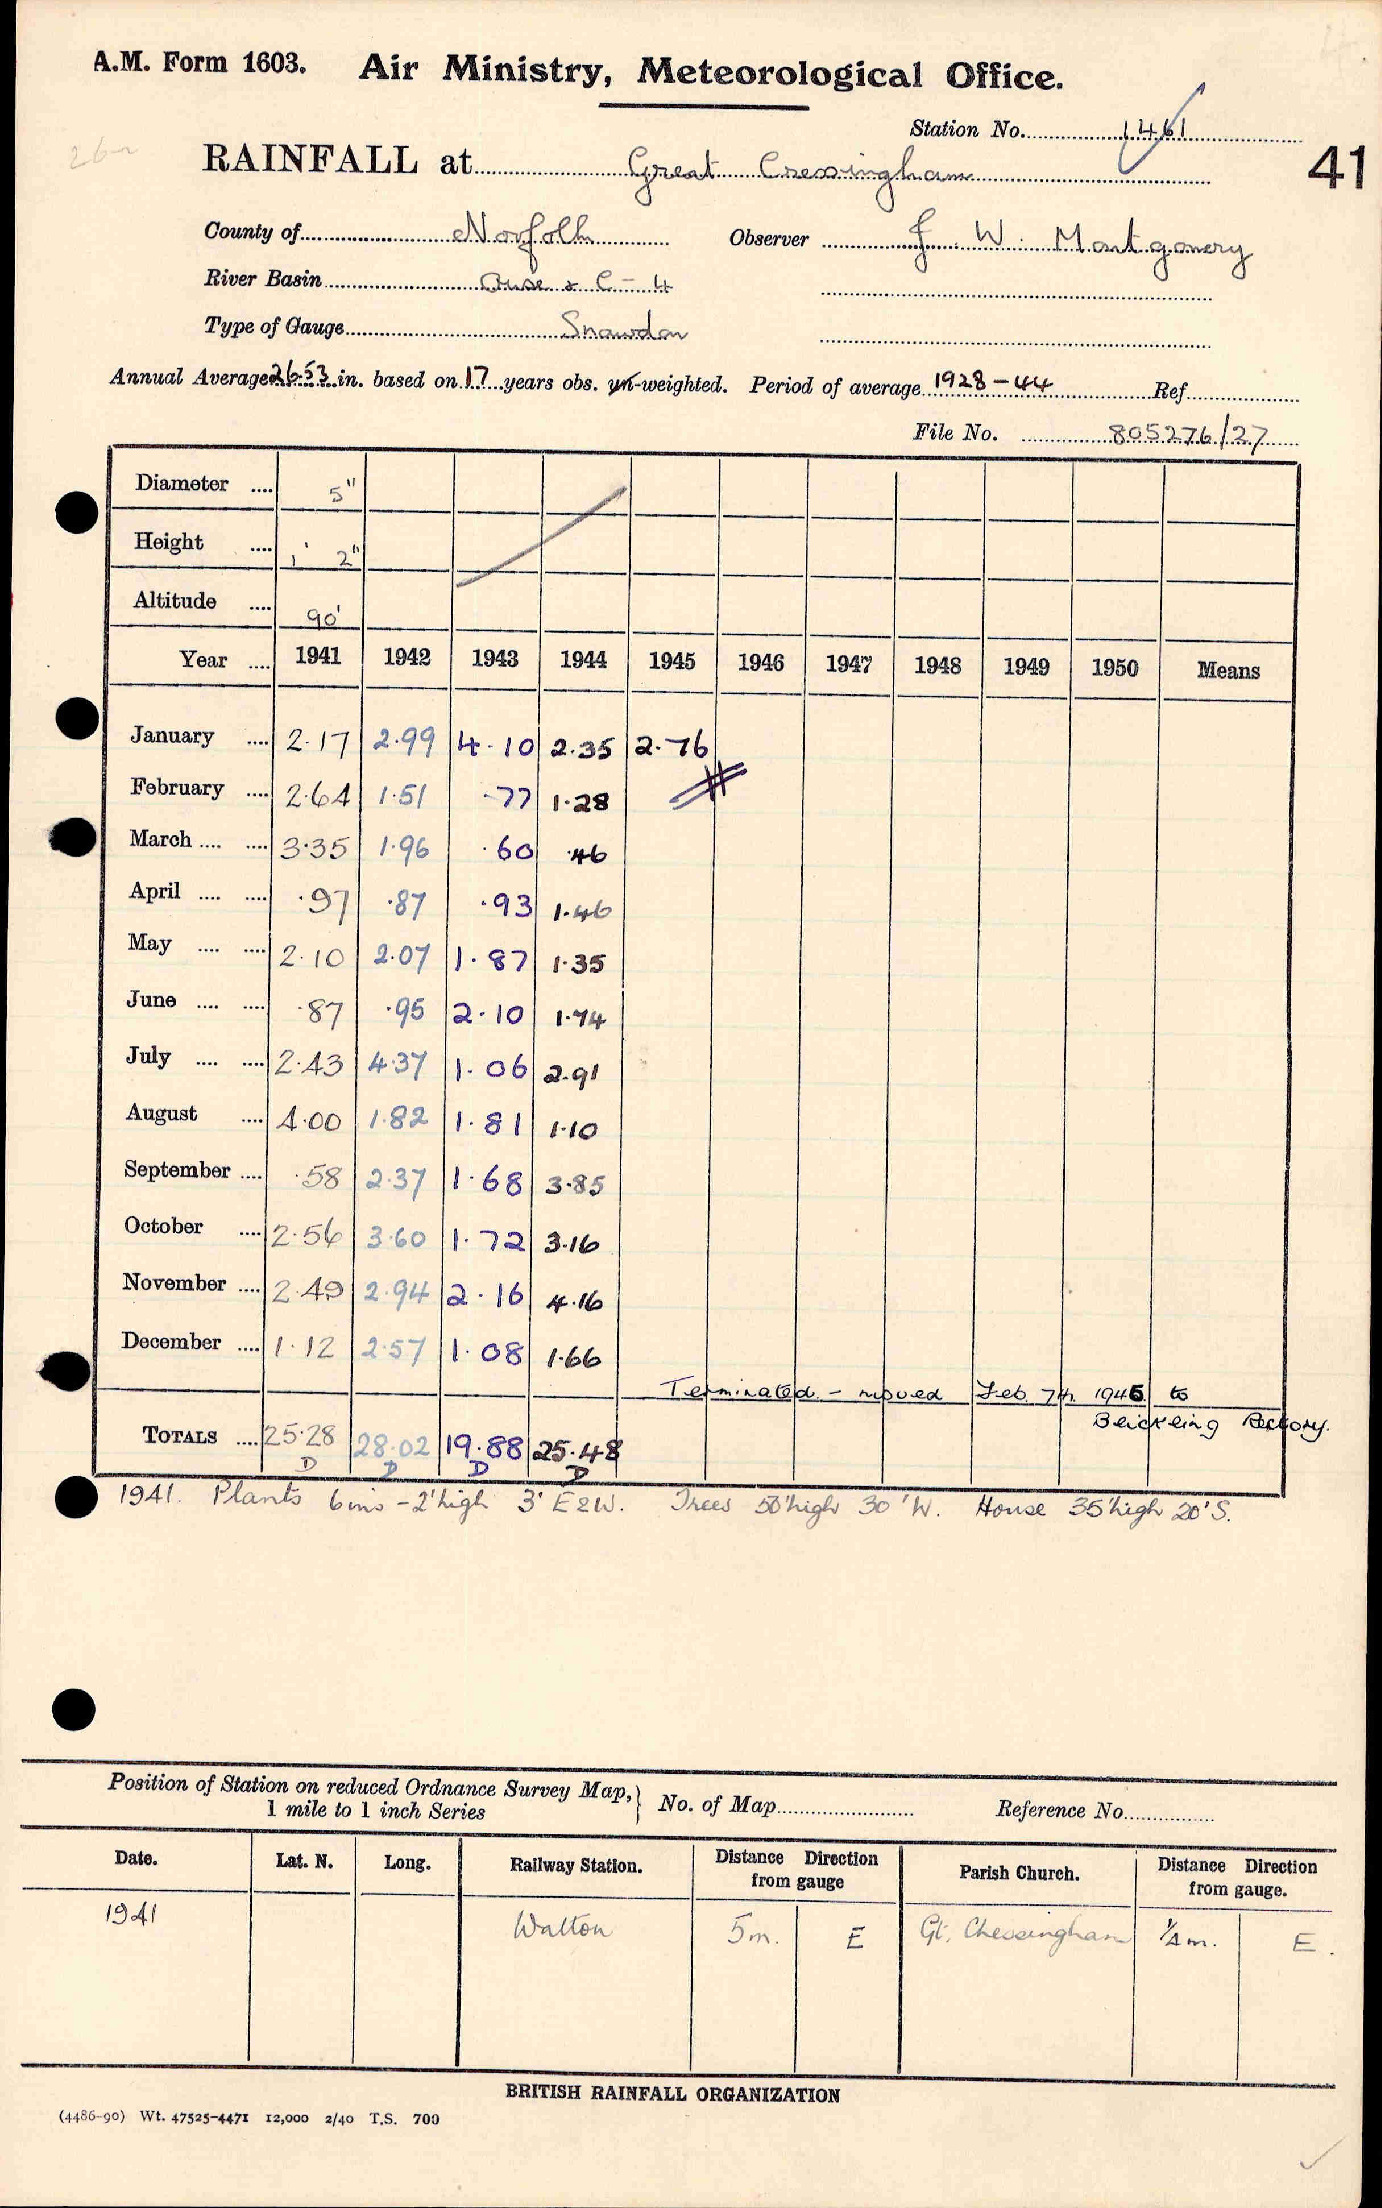 A.M. Form 1603. Air Ministry, Meteorological Office.
Station No. 1461
RAINFALL at Great Cressingham
41
County of Norfolk Observer J. W. Montgomery
River Basin Ouse & C - 4
Type of Gauge Snowdon
Annual Average 26.53 in. based on 17 years obs. un-weighted. Period of average 1928-44 Ref.
File No. 805276/27
Diameter .... 5"
Height .... 1' 2"
Altitude .... 90'
Year .... 1941 1942 1943 1944 1945 1946 1947 1948 1949 1950 Means
January .... 2.17 2.99 4.10 2.35 2.76
February .... 2.64 1.51 .77 1.28
March .... .... 3.35 1.96 .60 .46
April .... .... .97 .87 .93 1.46
May .... .... 2.10 2.07 1.87 1.35
June .... .... .87 .95 2.10 1.74
July .... .... 2.43 4.37 1.06 2.91
August .... 4.00 1.82 1.81 1.10
September .... .58 2.37 1.68 3.85
October .... 2.56 3.60 1.72 3.16
November .... 2.49 2.94 2.16 4.16
December .... 1.12 2.57 1.08 1.66
Terminated - moved Feb 7th 1945 to
Blickling Rectory.
TOTALS .... 25.28 28.02 19.88 25.48
D D D D
1941. Plants 6ins - 2' high 3' E & W. Trees 50' high 30' W. House 35' high 20' S.
Position of Station on reduced Ordnance Survey Map, 1 mile to 1 inch Series } No. of Map Reference No.
Date. Lat. N. Long. Railway Station. Distance Direction from gauge Parish Church. Distance Direction from gauge.
1941 Watton 5m. E Gt. Chessingham 1/4 m. E.
BRITISH RAINFALL ORGANIZATION
(4486-90) Wt. 47525-4471 12,000 2/40 T.S. 700